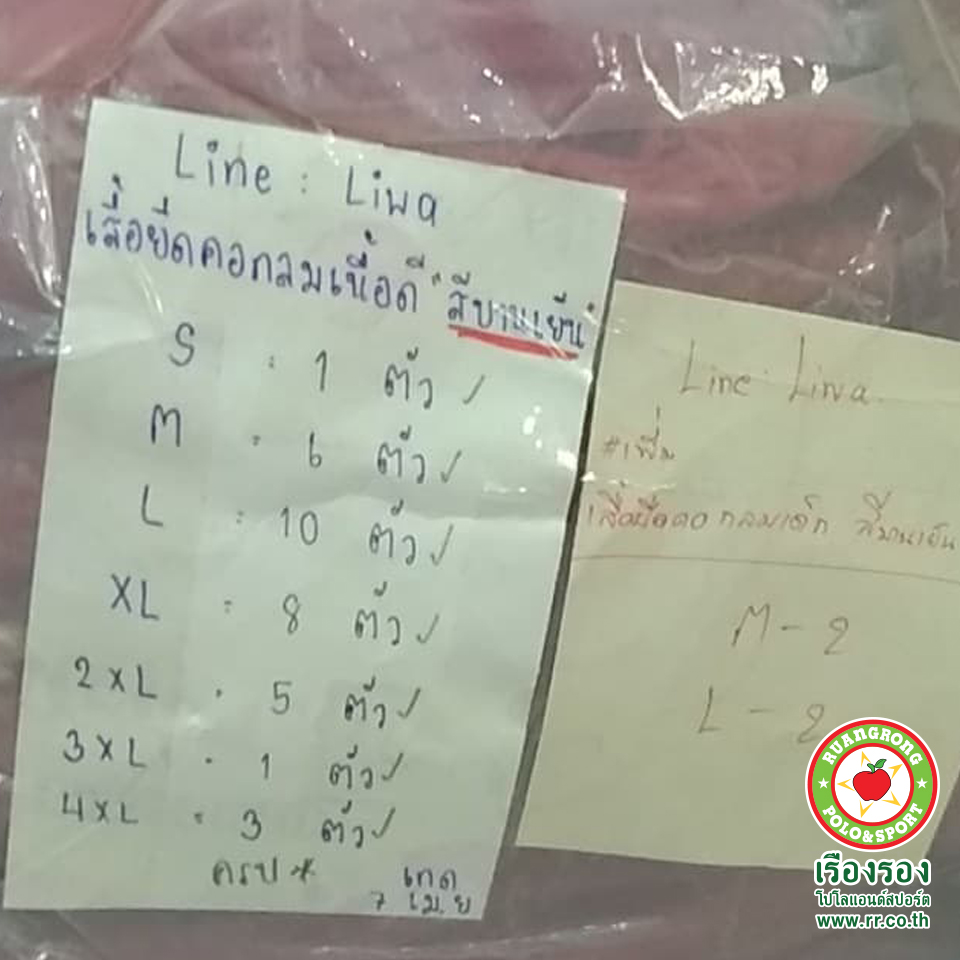 Line : Liwa
เสื้อยืดคอกลมเนื้อดี "สีบานเย็น"
S : 1 ตัว ✓
M = 6 ตัว ✓
L = 10 ตัว ✓
XL = 8 ตัว ✓
2XL = 5 ตัว ✓
3XL = 1 ตัว ✓
4XL = 3 ตัว ✓
ครบ *
7 เม.ย
Line : Liwa
#เพิ่ม
เสื้อยืดคอกลมเด็ก สีบานเย็น
M - 2
L - 2
RUANGRONG
POLO&SPORT
เรืองรอง
โปโลแอนด์สปอร์ต
www.rr.co.th